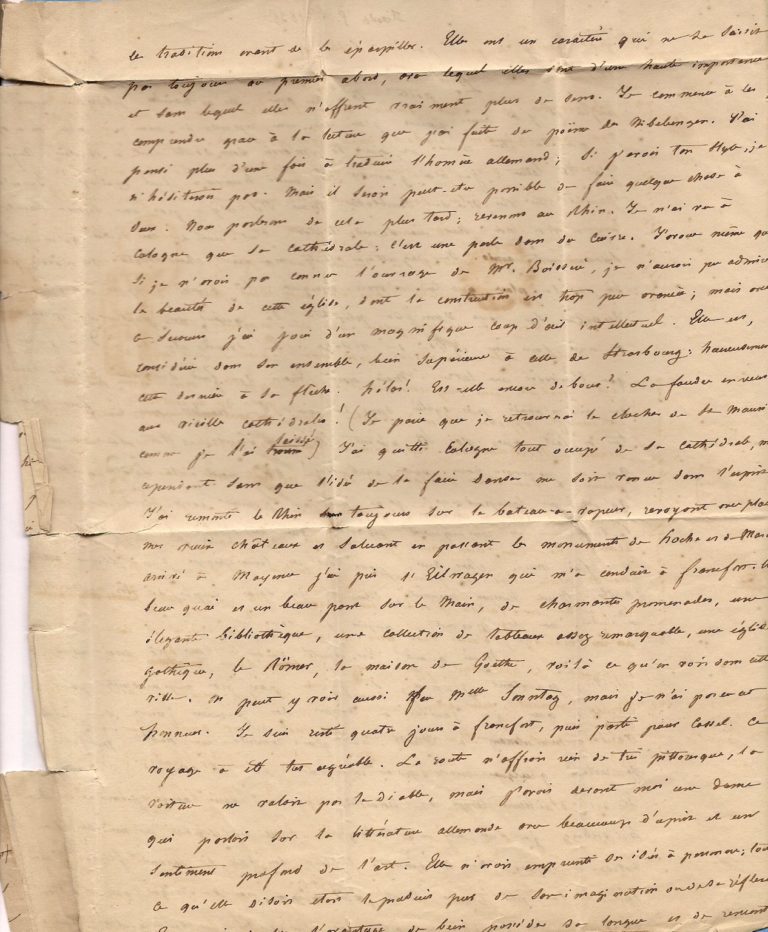 les traditions avant de les éparpiller. Elles ont un caractère qui ne se saisit
pas toujours au premier abord, sans lequel elles sont d'une haute importance
et sans lequel elles n'offrent vraiment plus de sens. Je commence à les
comprendre grace à la lecture que j'ai faite du poëme des Nibelungen. J'ai
pensé plus d'une fois à traduire l'homère allemand; si j'avois ton style, je
n'hésiterois pas. Mais il seroit peut-être possible de faire quelque chose à
deux. Nous parlerons de cela plus tard; revenons au Rhin. Je n'ai vu à
Cologne que sa cathédrale; c'est une perle dans du cuivre. J'avoue même que
si je n'avois pas connu l'ouvrage de Mr. Boisserée, je n'aurois pu admirer
la beauté de cette église, dont la construction est trop peu avancée; mais avec
ce secours j'ai joui d'un magnifique coup d'œil intellectuel. Elle est,
considérée dans son ensemble, bien supérieure à celle de Strasbourg; heureusement
cette dernière a sa flèche. hélas! Est-elle encore debout? La foudre en veut
aux vieilles cathédrales! (Je parie que je retrouverai le clocher de St Mauri
comme je l'ai laissé) J'ai quitté Cologne tout occupé de sa cathédrale,
cependant sans que l'idée de la faire danser me soit venue dans l'esprit
J'ai remonté le Rhin toujours sur le bateau-à-vapeur, revoyant avec plai
mes vieux châteaux et saluant en passant les monuments de hoche et de Marc
arrivé à Mayence j'ai pris l'Eilwagen qui m'a conduit à francfort.
beau quai et un beau pont sur le Main, de charmantes promenades, une
élégante bibliothèque, une collection de tableaux assez remarquable, une église
gothique, le Römer, la maison de Goethe, voilà ce qu'on voit dans cette
ville. On peut y voir aussi Melle Sonntag, mais je n'ai pas eu cet
honneur. Je suis resté quatre jours à francfort, puis parti pour Cassel. Ce
voyage a été très agréable. La route n'offroit rien de très pittoresque, la
voiture ne valoit pas le diable, mais j'avois devant moi une dame
qui parloit sur la littérature allemande avec beaucoup d'esprit et un
sentiment profond de l'art. Elle n'avoit emprunté ses idées à personne; tout
ce qu'elle disoit étoit le produit pur de son imagination ou de sa réflex
l'avantage de bien posséder sa langue et de